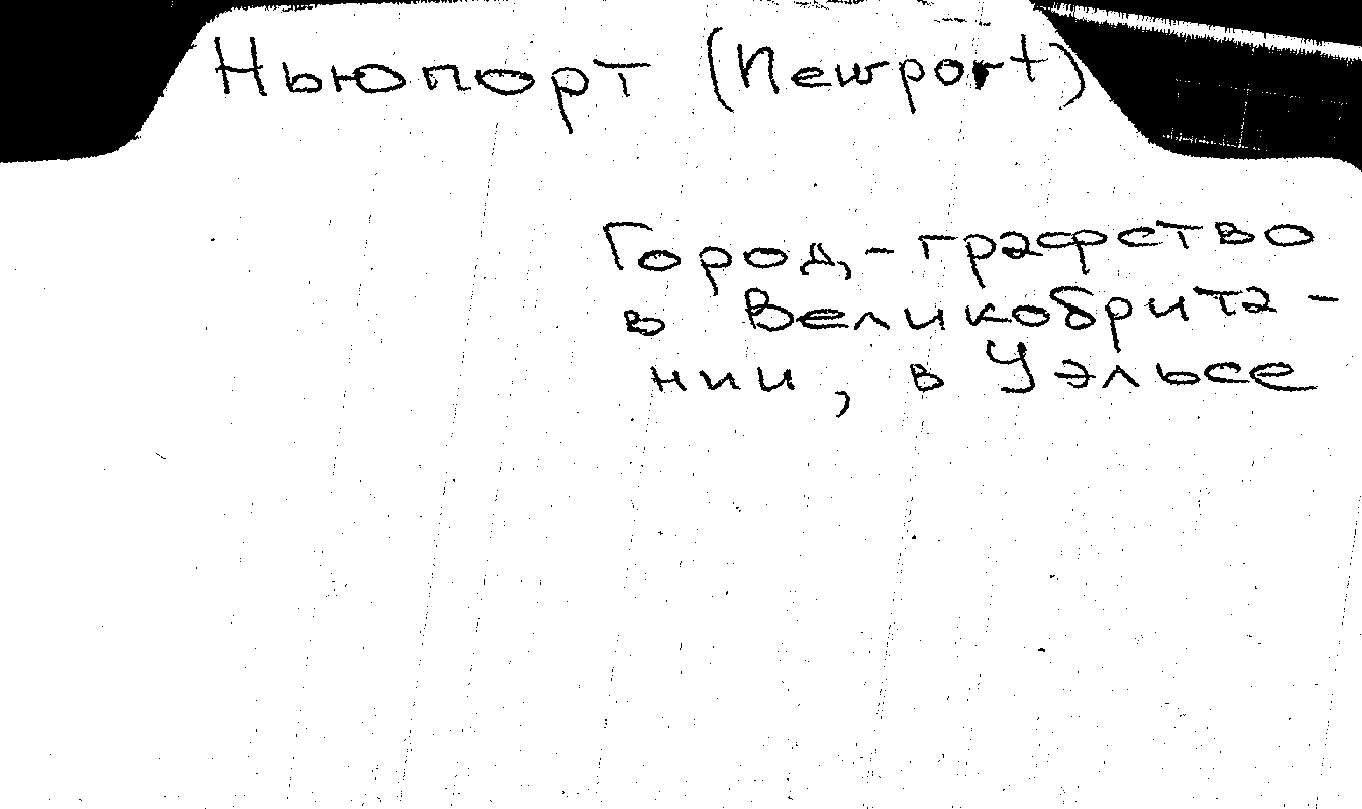 Ньюпорт (Newport)
Город-графство
в Великобрита-
нии, в Уэльсе